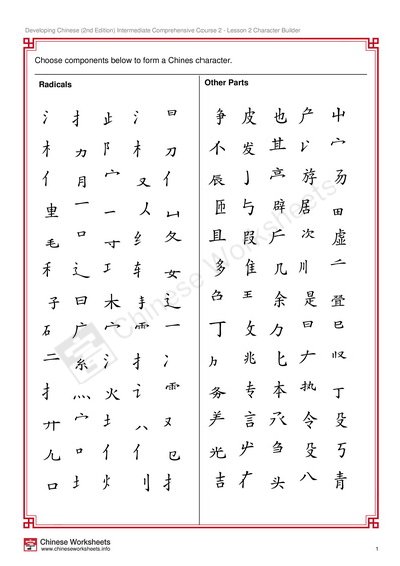 Developing Chinese (2nd Edition) Intermediate Comprehensive Course 2 - Lesson 2 Character Builder
Choose components below to form a Chines character.
Radicals
氵 扌 止 氵 曰
木 力 阝 木 刀
亻 月 宀 又 亻
里 一 一 人 凵
毛 口 寸 纟 夂
禾 辶 工 车 女
子 日 木 扌 辶
石 广 宀 雨 一
二 糸 氵 扌 氵
扌 灬 火 讠 雨
廾 宀 土 八 又
几 口 亻 亻 已
口 土 火 刂 扌
Other Parts
争 皮 也 产 屮
不 发 其 冖
辰 亅 亠 斿 昜
匝 与 辟 居 田
且 段 次 虚
多 隹 几 川
刍 王 余 是 叠
丁 攵 万 曰 巳
兆 匕 𠂇 収
务 专 本 执 丁
言 令 殳
光 刍 殳 丂
吉 头 八 青
Chinese Worksheets
Chinese Worksheets
www.chineseworksheets.info
1